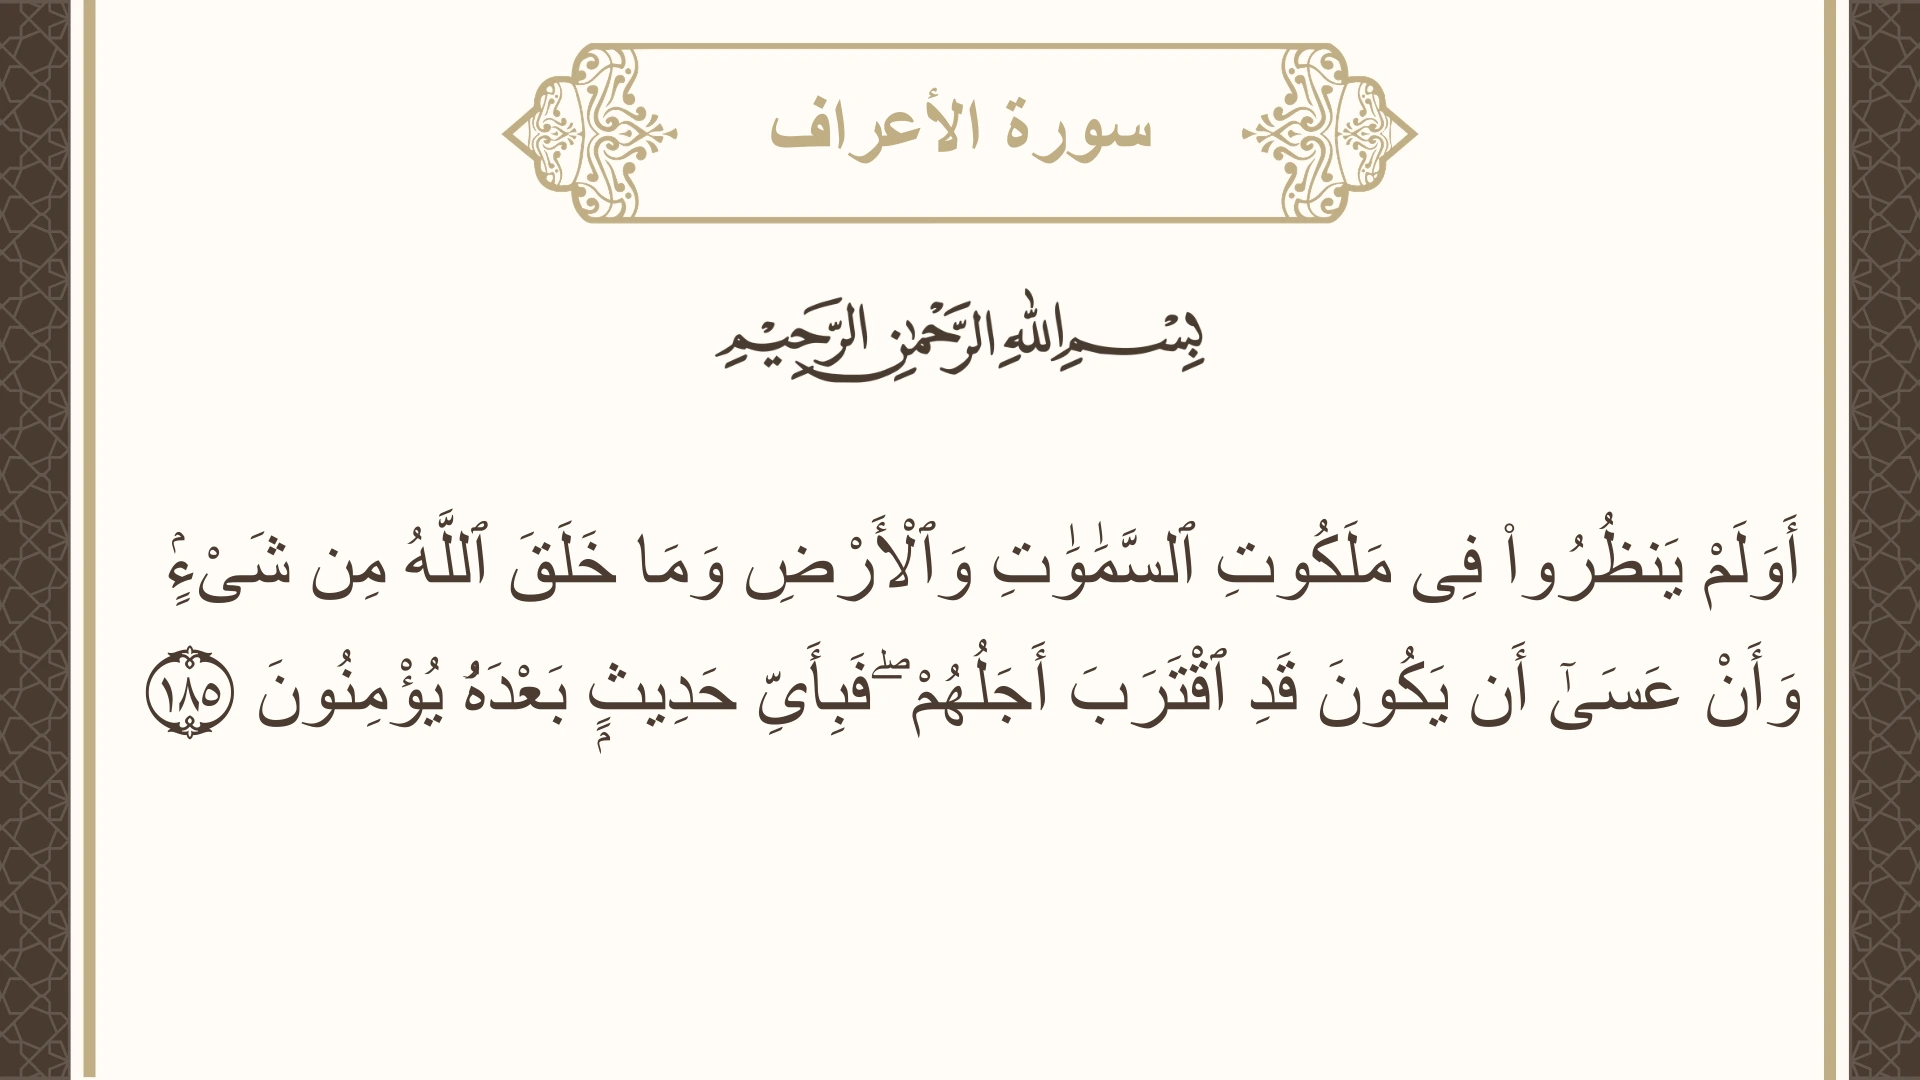 سورة الأعراف
بِسْمِ اللهِ الرَّحْمٰنِ الرَّحِيْمِ
أَوَلَمْ يَنظُرُوا۟ فِى مَلَكُوتِ ٱلسَّمَـٰوَٰتِ وَٱلْأَرْضِ وَمَا خَلَقَ ٱللَّهُ مِن شَىْءٍۢ
وَأَنْ عَسَىٰٓ أَن يَكُونَ قَدِ ٱقْتَرَبَ أَجَلُهُمْ ۖ فَبِأَىِّ حَدِيثٍۭ بَعْدَهُۥ يُؤْمِنُونَ ١٨٥